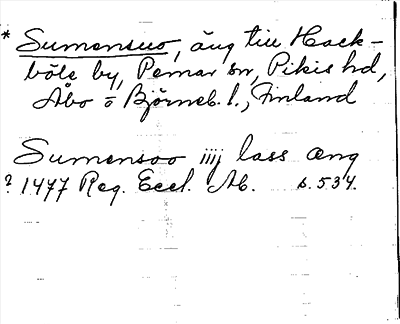 * Sumensuo, äng till Hack-
böle by, Pemar sn, Pikis hd,
Åbo o Björneb. l., Finland
Sumensoo iiij lass æng
? 1477 Reg. Eccl. Ab. s. 534.